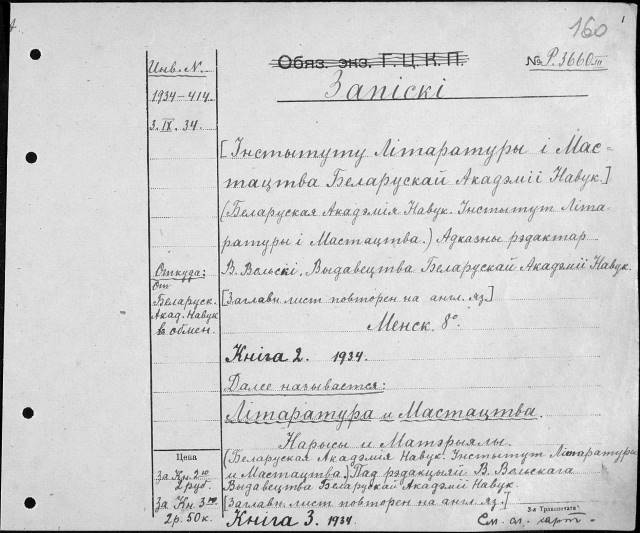 160
Обяз. экз. Г.Ц.К.П.
№ Р.3660/III
Инв. N.
1934-414
3.IX.34.
Запіскі
[Інстытуту Літаратуры і Мас-
тацтва Беларускай Акадэміі Навук.]
(Беларуская Акадэмія Навук. Інстытут Літа-
ратуры і Мастацтва.) Адказны рэдактар
В. Вольскі. Выдавецтва Беларускай Акадэміі Навук.
[Заглавн. лист повторен на англ. яз.]
Менск. 8°.
Откуда:
От
Беларуск.
Акад. Навук
в обмен.
Кніга 2. 1934.
Далее называется:
Літаратура и Мастацтва.
Нарысы и Матэрыялы.
(Беларуская Акадэмія Навук. Інстытут Літаратуры
и Мастацтва.) Пад рэдакцыяй В. Вольскага
Выдавецтва Беларускай Акадэміі Навук.
[Заглавн. лист повторен на англ. яз.]
Кніга 3. 1934.
Цена
За Кн. 2ую
2 руб.
За Кн. 3ую
2 р. 50 к.
См. сл. карт.